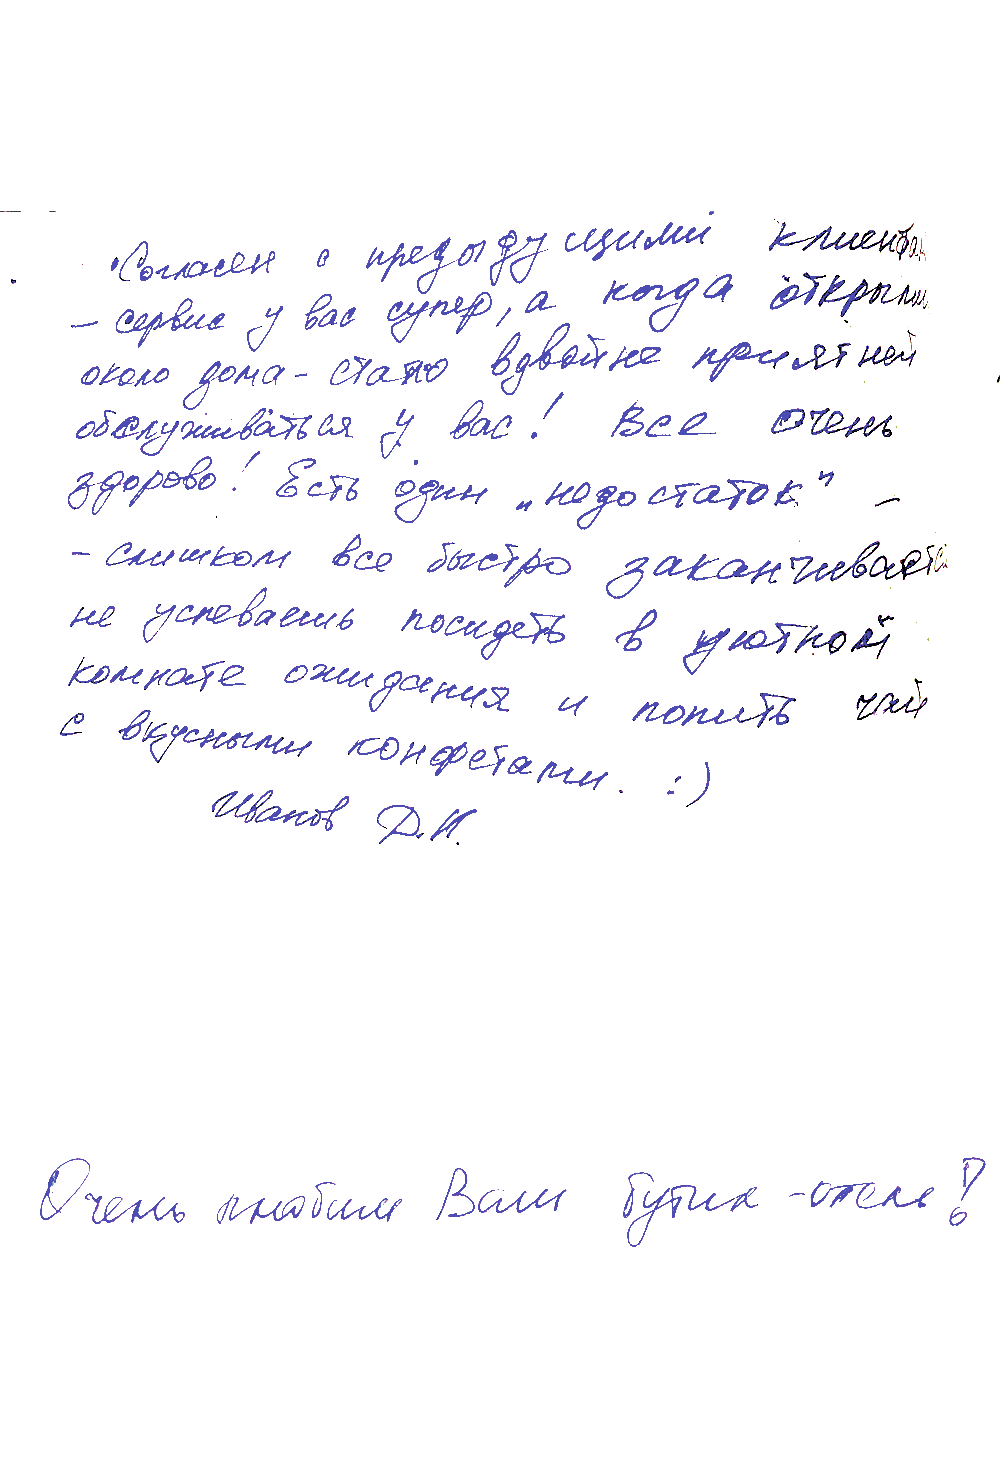 Согласен с предыдущими клиентами
– сервис у вас супер, а когда открыли
около дома – стало вдвойне приятней
обслуживаться у вас! Все очень
здорово! Есть один „недостаток" –
– слишком все быстро заканчивается
не успеваешь посидеть в уютной
комнате ожидания и попить чай
с вкусными конфетами. :)
Иванов Д.И.
Очень любим Ваш бутик-отель!